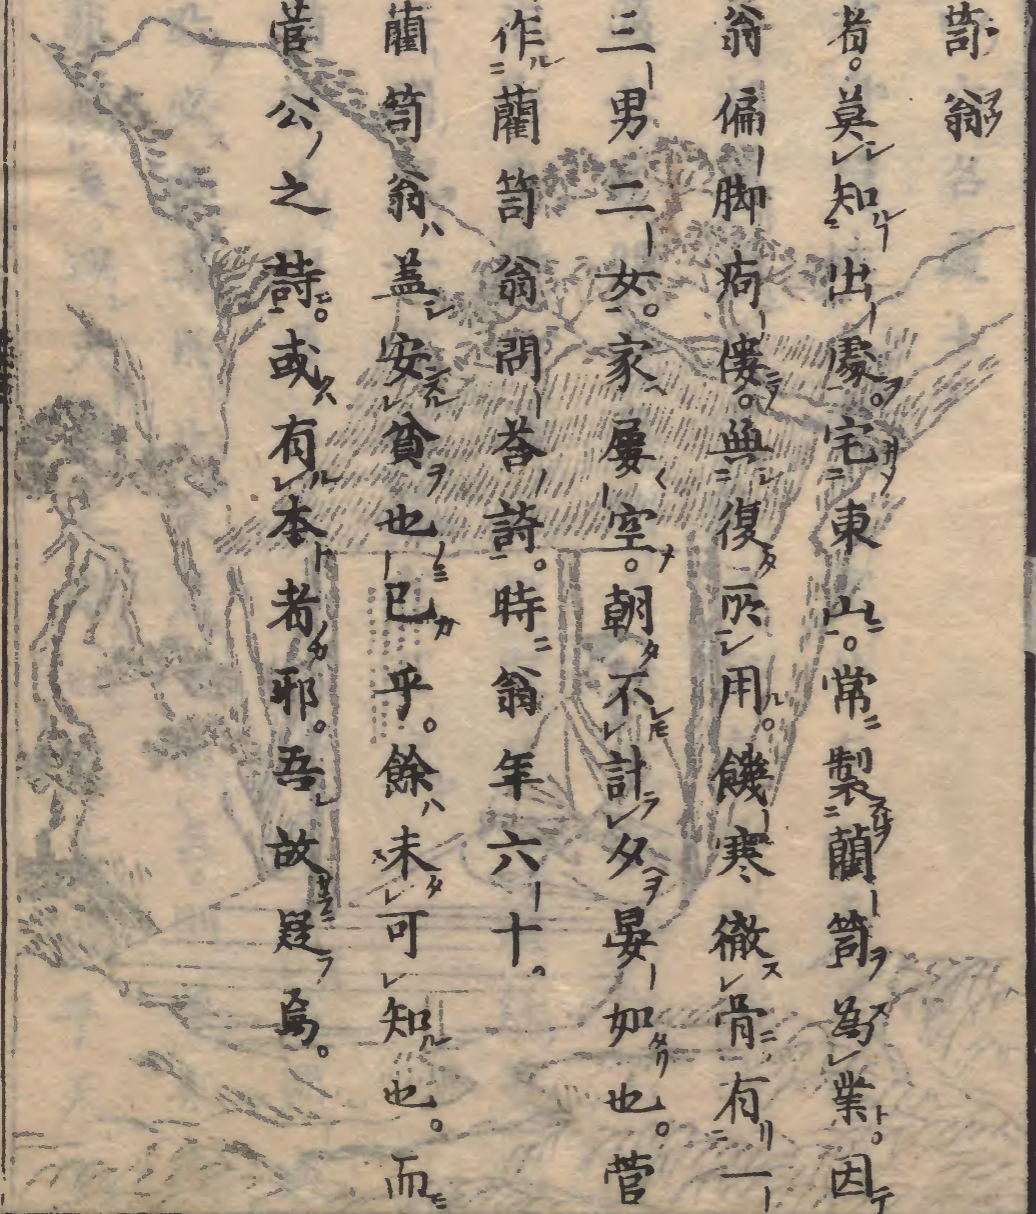 笥翁
者。莫知出處。宅東山。常製藺笥為業。因
翁偏脚痀僂。無復所用。饑寒徹骨有一
三男二女。家屢空。朝不計夕晏如也。菅
作藺笥翁問荅詩。時翁年六十。
藺笥翁蓋安貧也已乎。餘未可知也。而
菅公之詩。或有本者邪。吾故疑焉。